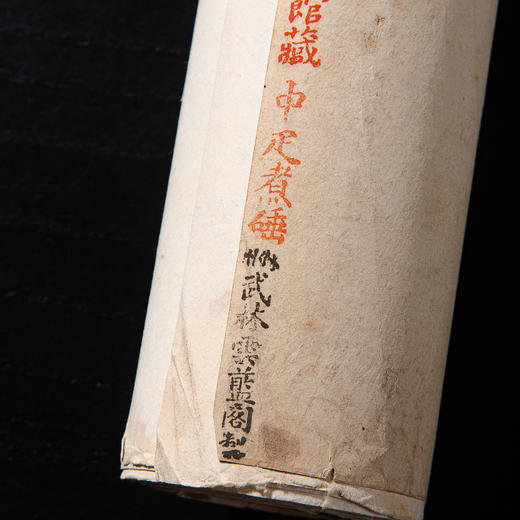 館藏中疋煮硾
杭州武林雲藍閣製